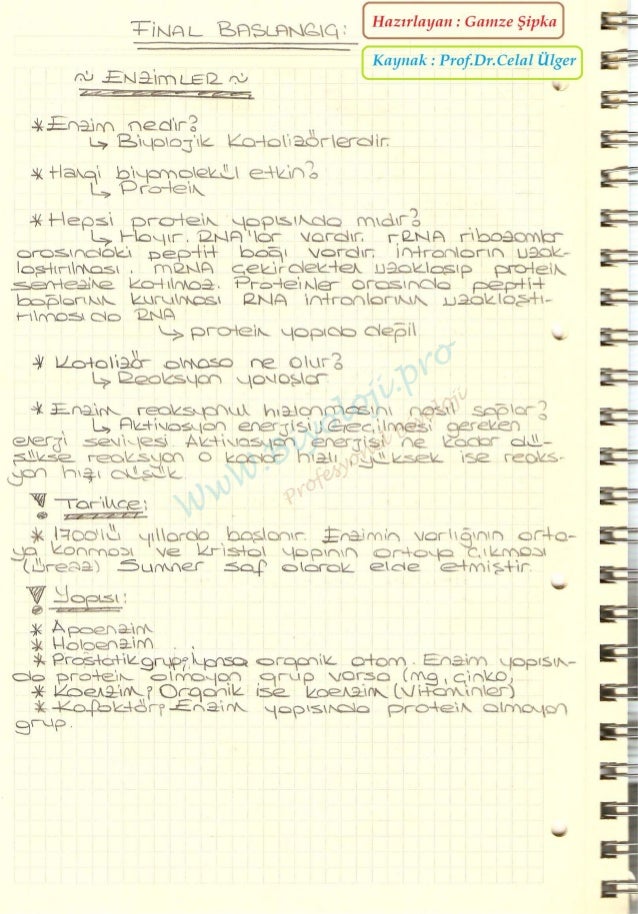 FİNAL BAŞLANGIÇ:
Hazırlayan : Gamze Şipka
Kaynak : Prof.Dr.Celal Ülger
~ ENZİMLER ~
* Enzim nedir?
↳ Biyolojik katalizörlerdir.
* Hangi biyomolekül etkin?
↳ Protein
* Hepsi protein yapısında mıdır?
↳ Hayır. RNA'lar vardır. rRNA ribozomlar
arasındaki peptit bağı vardır. İntronların uzak-
laştırılması. mRNA çekirdekten uzaklaşıp protein
sentezine katılmaz. Proteinler arasında peptit
bağlarının kurulması RNA intronlarının uzaklaştı-
rılması da RNA
↳ protein yapıda değil
* Katalizör olmasa ne olur?
↳ Reaksyon yavaşlar
* Enzim reaksyonun hızlanmasını nasıl sağlar?
↳ Aktivasyon enerjisi; Geçilmesi gereken
enerji seviyesi. Aktivasyon enerjisi ne kadar dü-
şükse reaksyon o kadar hızlı yüksek ise reaks-
yon hızı düşük.
Tarihçe:
* 1700'lü yıllarda başlanır. Enzimin varlığının orta-
ya konması ve kristal yapının ortaya çıkması
(üreaz) Sumner saf olarak elde etmiştir.
Yapısı:
* Apoenzim
* Holoenzim
* Prostatik grup; organik atom. Enzim yapısın-
da protein olmayan grup varsa (mg, çinko)
* Koenzim; Organik ise koenzim (Vitaminler)
* Kofaktör; Enzim yapısında protein olmayan
grup.
www.Biyoloji.pro
Profesyonel Biyoloji